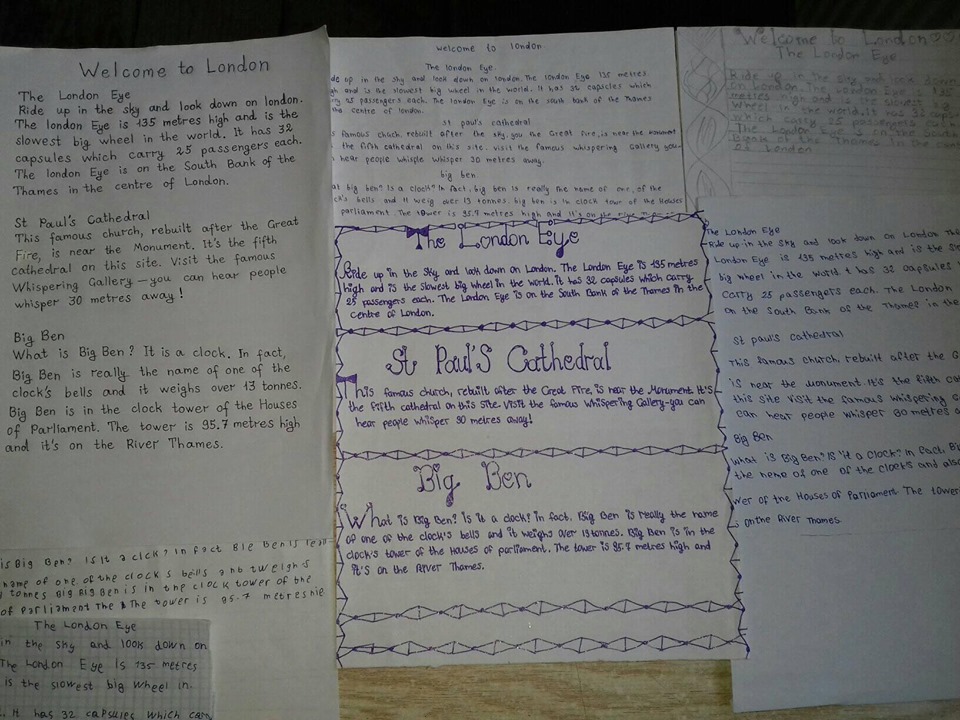 Welcome to London
The London Eye
Ride up in the sky and look down on london.
The london Eye is 135 metres high and is the
slowest big wheel in the world. It has 32
capsules which carry 25 passengers each.
The london Eye is on the South Bank of the
Thames in the centre of London.
St Paul's Cathedral
This famous church, rebuilt after the Great
Fire, is near the Monument. It's the fifth
cathedral on this site. Visit the famous
Whispering Gallery-you can hear people
whisper 30 metres away!
Big Ben
What is Big Ben? It is a clock. In fact,
Big Ben is really the name of one of the
clock's bells and it weighs over 13 tonnes.
Big Ben is in the clock tower of the Houses
of Parliament. The tower is 95.7 metres high
and it's on the River Thames.
is Big Ben? Is it a clck? In fact Big Ben is
name of one of the clock s bells
tonnes Big Ben is in the clock tower of the
of Parliament The The tower is 95.7 metres
The London Eye
in the sky and look down on
The London Eye Is 135 metres
is the slowest big wheel in.
It has 32 capsules which
welcome to london
The london Eye.
up in the sky and look down on london. The london Eye 135 metres.
and is the slowest big weel in the world. It has 32 capsules which
25 passengers each. The london Eye is on the south bank of the Thames
centre of london.
st paul's cathedral
famous chuch, rebuilt after the sky, you the Great fire, is near the monument
the fifth cathedral on this site. visit the famous whispering gallery you
hear people whisple whisper 30 metres away.
big ben
big ben? Is a clock? In fact, big ben is really the name of one, of the
bells and it weig over 13 tonnes. big ben is in clock tower of the Houses
parliament. The tower is 95.7 metres high and it's on the
The London Eye
Ride up in the sky and look down on London. The London Eye is 135 metres
high and is the slowest big wheel in the world. it has 32 capsules which carry
25 passengers each. The London Eye is on the South Bank of the Thames in the
centre of London.
St Paul's Cathedral
This famous church, rebuilt after the Great Fire, is near the Monument. It's
the fifth cathedral on this site. Visit the famous whispering Gallery-you can
hear people whisper 30 metres away!
Big Ben
What is Big Ben? Is it a clock? in fact, Big Ben is really the name
of one of the clock's bells and it weighs over 13 tonnes. Big Ben is in the
clock's tower of the Houses of parliament. The tower is 95.7 metres high and
it's on the River Thames.
Welcome to London
The London Eye
Ride up in the sky and look down
on London. The London Eye is 135
metres high and is the slowest big
wheel in the world. It has 32
which carry 25 passengers
The London Eye is on the South
Bank of the Thames in the
of London
The London Eye
Ride up in the sky and look down on London
London Eye is 135 metres high and is the
big wheel in the world t has 32 capsules
carry 25 passengers each. The London
on the South Bank of the Thames in the
st paul's cathedral
This famous church, rebuilt after the
is near the Monument. It's the fifth
this site Visit the famous whispering
can hear people whisper 30 metres
Big Ben
what is Big Ben? IS it a clock? In fact,
the name of one of the clocks and
of the Houses of Parliament The tower
on the River Thames.